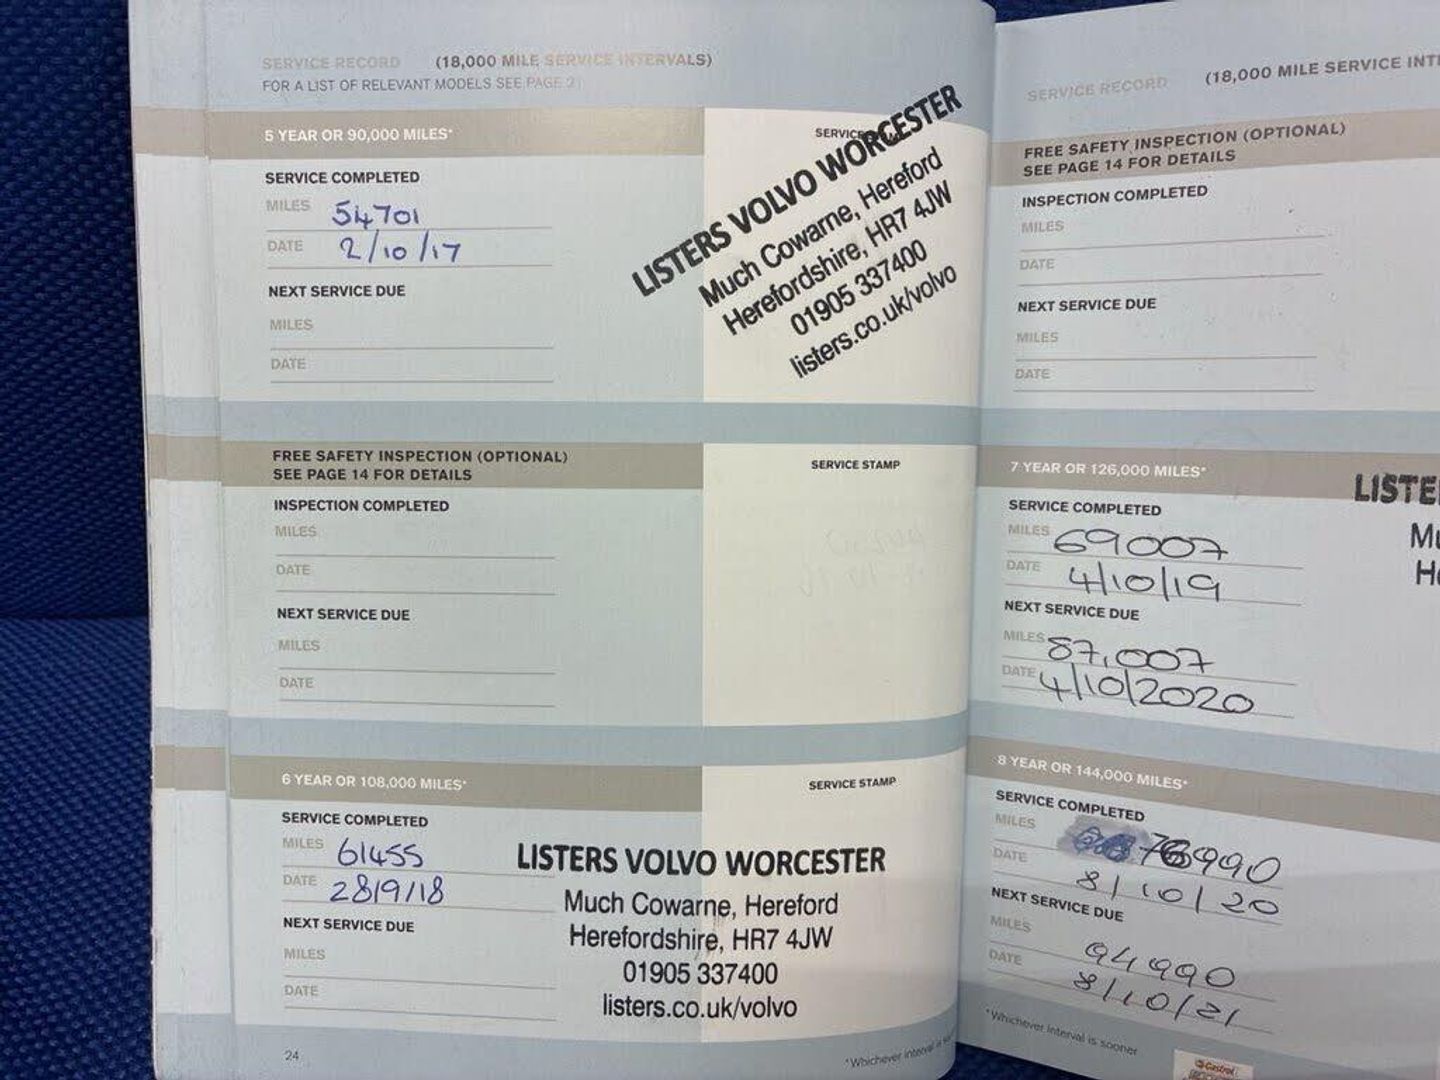 SERVICE RECORD (18,000 MILE SERVICE INTERVALS)
FOR A LIST OF RELEVANT MODELS SEE PAGE 2
5 YEAR OR 90,000 MILES*
SERVICE COMPLETED
MILES 54701
DATE 2/10/17
NEXT SERVICE DUE
MILES
DATE
SERVICE
LISTERS VOLVO WORCESTER
Much Cowarne, Hereford
Herefordshire, HR7 4JW
01905 337400
listers.co.uk/volvo
FREE SAFETY INSPECTION (OPTIONAL)
SEE PAGE 14 FOR DETAILS
INSPECTION COMPLETED
MILES
DATE
NEXT SERVICE DUE
MILES
DATE
SERVICE STAMP
6 YEAR OR 108,000 MILES*
SERVICE COMPLETED
MILES 61455
DATE 28/9/18
NEXT SERVICE DUE
MILES
DATE
SERVICE STAMP
LISTERS VOLVO WORCESTER
Much Cowarne, Hereford
Herefordshire, HR7 4JW
01905 337400
listers.co.uk/volvo
24
*Whichever interval is
SERVICE RECORD (18,000 MILE SERVICE INT
FREE SAFETY INSPECTION (OPTIONAL)
SEE PAGE 14 FOR DETAILS
INSPECTION COMPLETED
MILES
DATE
NEXT SERVICE DUE
MILES
DATE
7 YEAR OR 126,000 MILES*
SERVICE COMPLETED
MILES 69007
DATE 4/10/19
NEXT SERVICE DUE
MILES 87,007
DATE 4/10/2020
LISTE
Mu
He
8 YEAR OR 144,000 MILES*
SERVICE COMPLETED
MILES 76990
DATE 8/10/20
NEXT SERVICE DUE
MILES 94990
DATE 8/10/21
*Whichever interval is sooner
Castrol